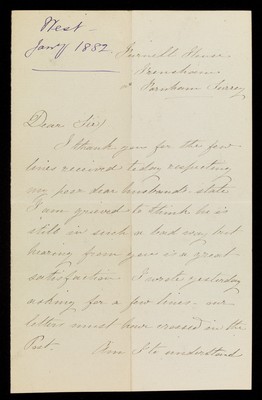 West -
Jany 1882.
House
Frensham
nr Farnham Surrey
Dear Sir/
I thank you for the few
lines received today respecting
my poor dear husband's state
I am grieved to think he is
still in such a bad way, but
hearing from you is a great -
satisfaction. I wrote yesterday
asking for a few lines - our
letters must have crossed in the
Post. Am I to understand